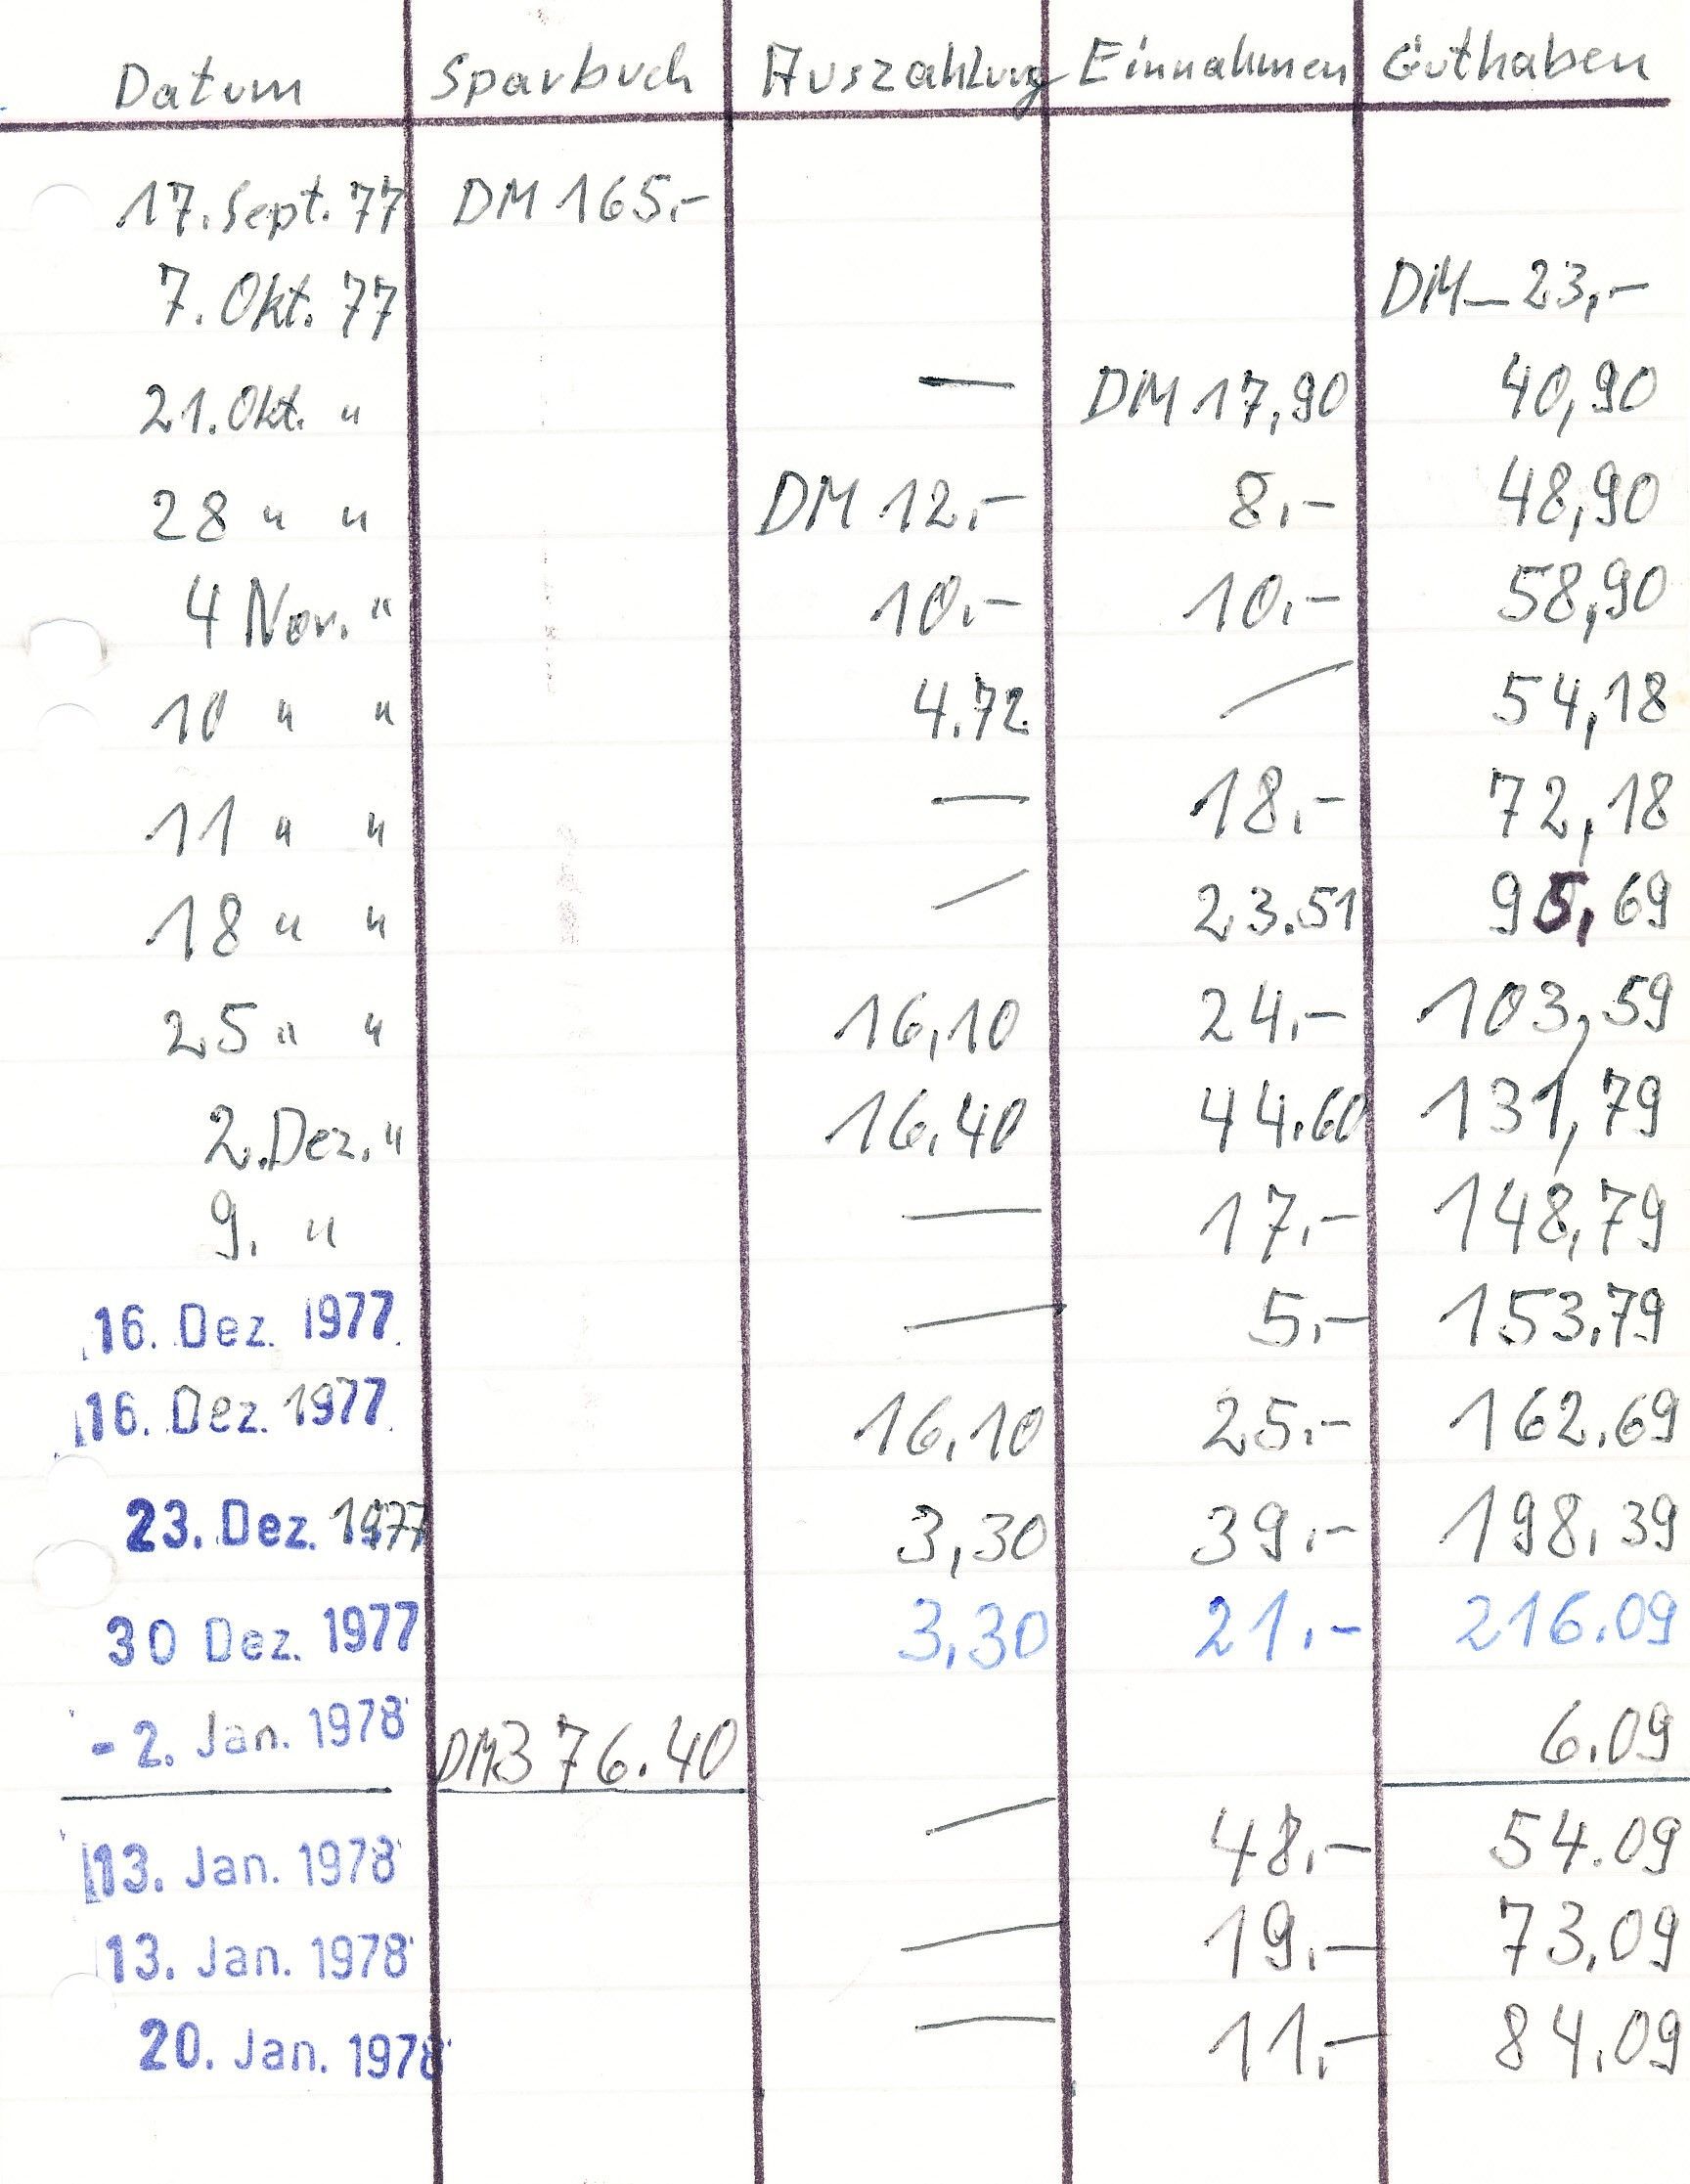 Datum Sparbuch Auszahlung Einnahmen Guthaben
17. Sept. 77 DM 165.-
7. Okt. 77 DM — 23,-
21. Okt. " — DM 17,90 40,90
28 " " DM 12.- 8.- 48,90
4 Nov. " 10.- 10.- 58,90
10 " " 4.72 — 54,18
11 " " — 18.- 72,18
18 " " — 23.51 95,69
25 " " 16,10 24.- 103,59
2. Dez. " 16.40 44.60 131,79
9. " — 17.- 148,79
16. Dez. 1977 — 5.- 153,79
16. Dez. 1977 16,10 25.- 162.69
23. Dez. 1977 3,30 39.- 198,39
30 Dez. 1977 3,30 21.- 216.09
- 2. Jan. 1978 DM 376.40 6.09
13. Jan. 1978 — 48.- 54.09
13. Jan. 1978 — 19.- 73.09
20. Jan. 1978 — 11.- 84.09